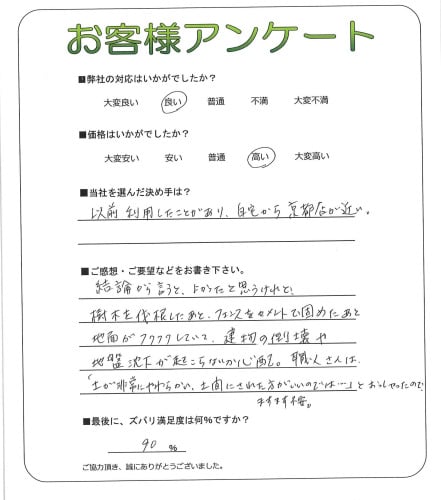 お客様アンケート
■弊社の対応はいかがでしたか?
大変良い 良い 普通 不満 大変不満
■価格はいかがでしたか?
大変安い 安い 普通 高い 大変高い
■当社を選んだ決め手は?
以前 利用したことがあり、自宅から 京都店が近い。
■ご感想・ご要望などをお書き下さい。
結論から言うと、よかったと思うけれど、
樹木を伐根したあと、フェンスをセメントで固めたあと
地面がフワフワしていて、建物の倒壊や
地盤沈下が起こらないか心配。職人さんは、
「土が非常にやわらかい、土間にされた方がいいのでは…」とおっしゃったので
ますます不安。
■最後に、ズバリ満足度は何%ですか?
90 %
ご協力頂き、誠にありがとうございました。